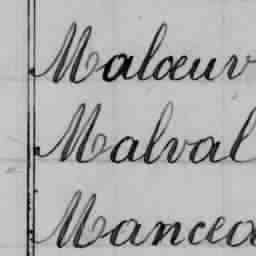 Malœuv
Malval
Mancea